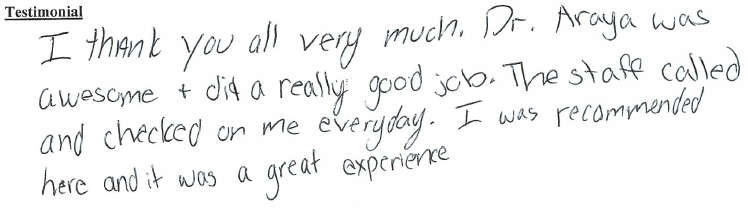 Testimonial
I thank you all very much. Dr. Araya was
awesome + did a really good job. The staff called
and checked on me everyday. I was recommended
here and it was a great experience